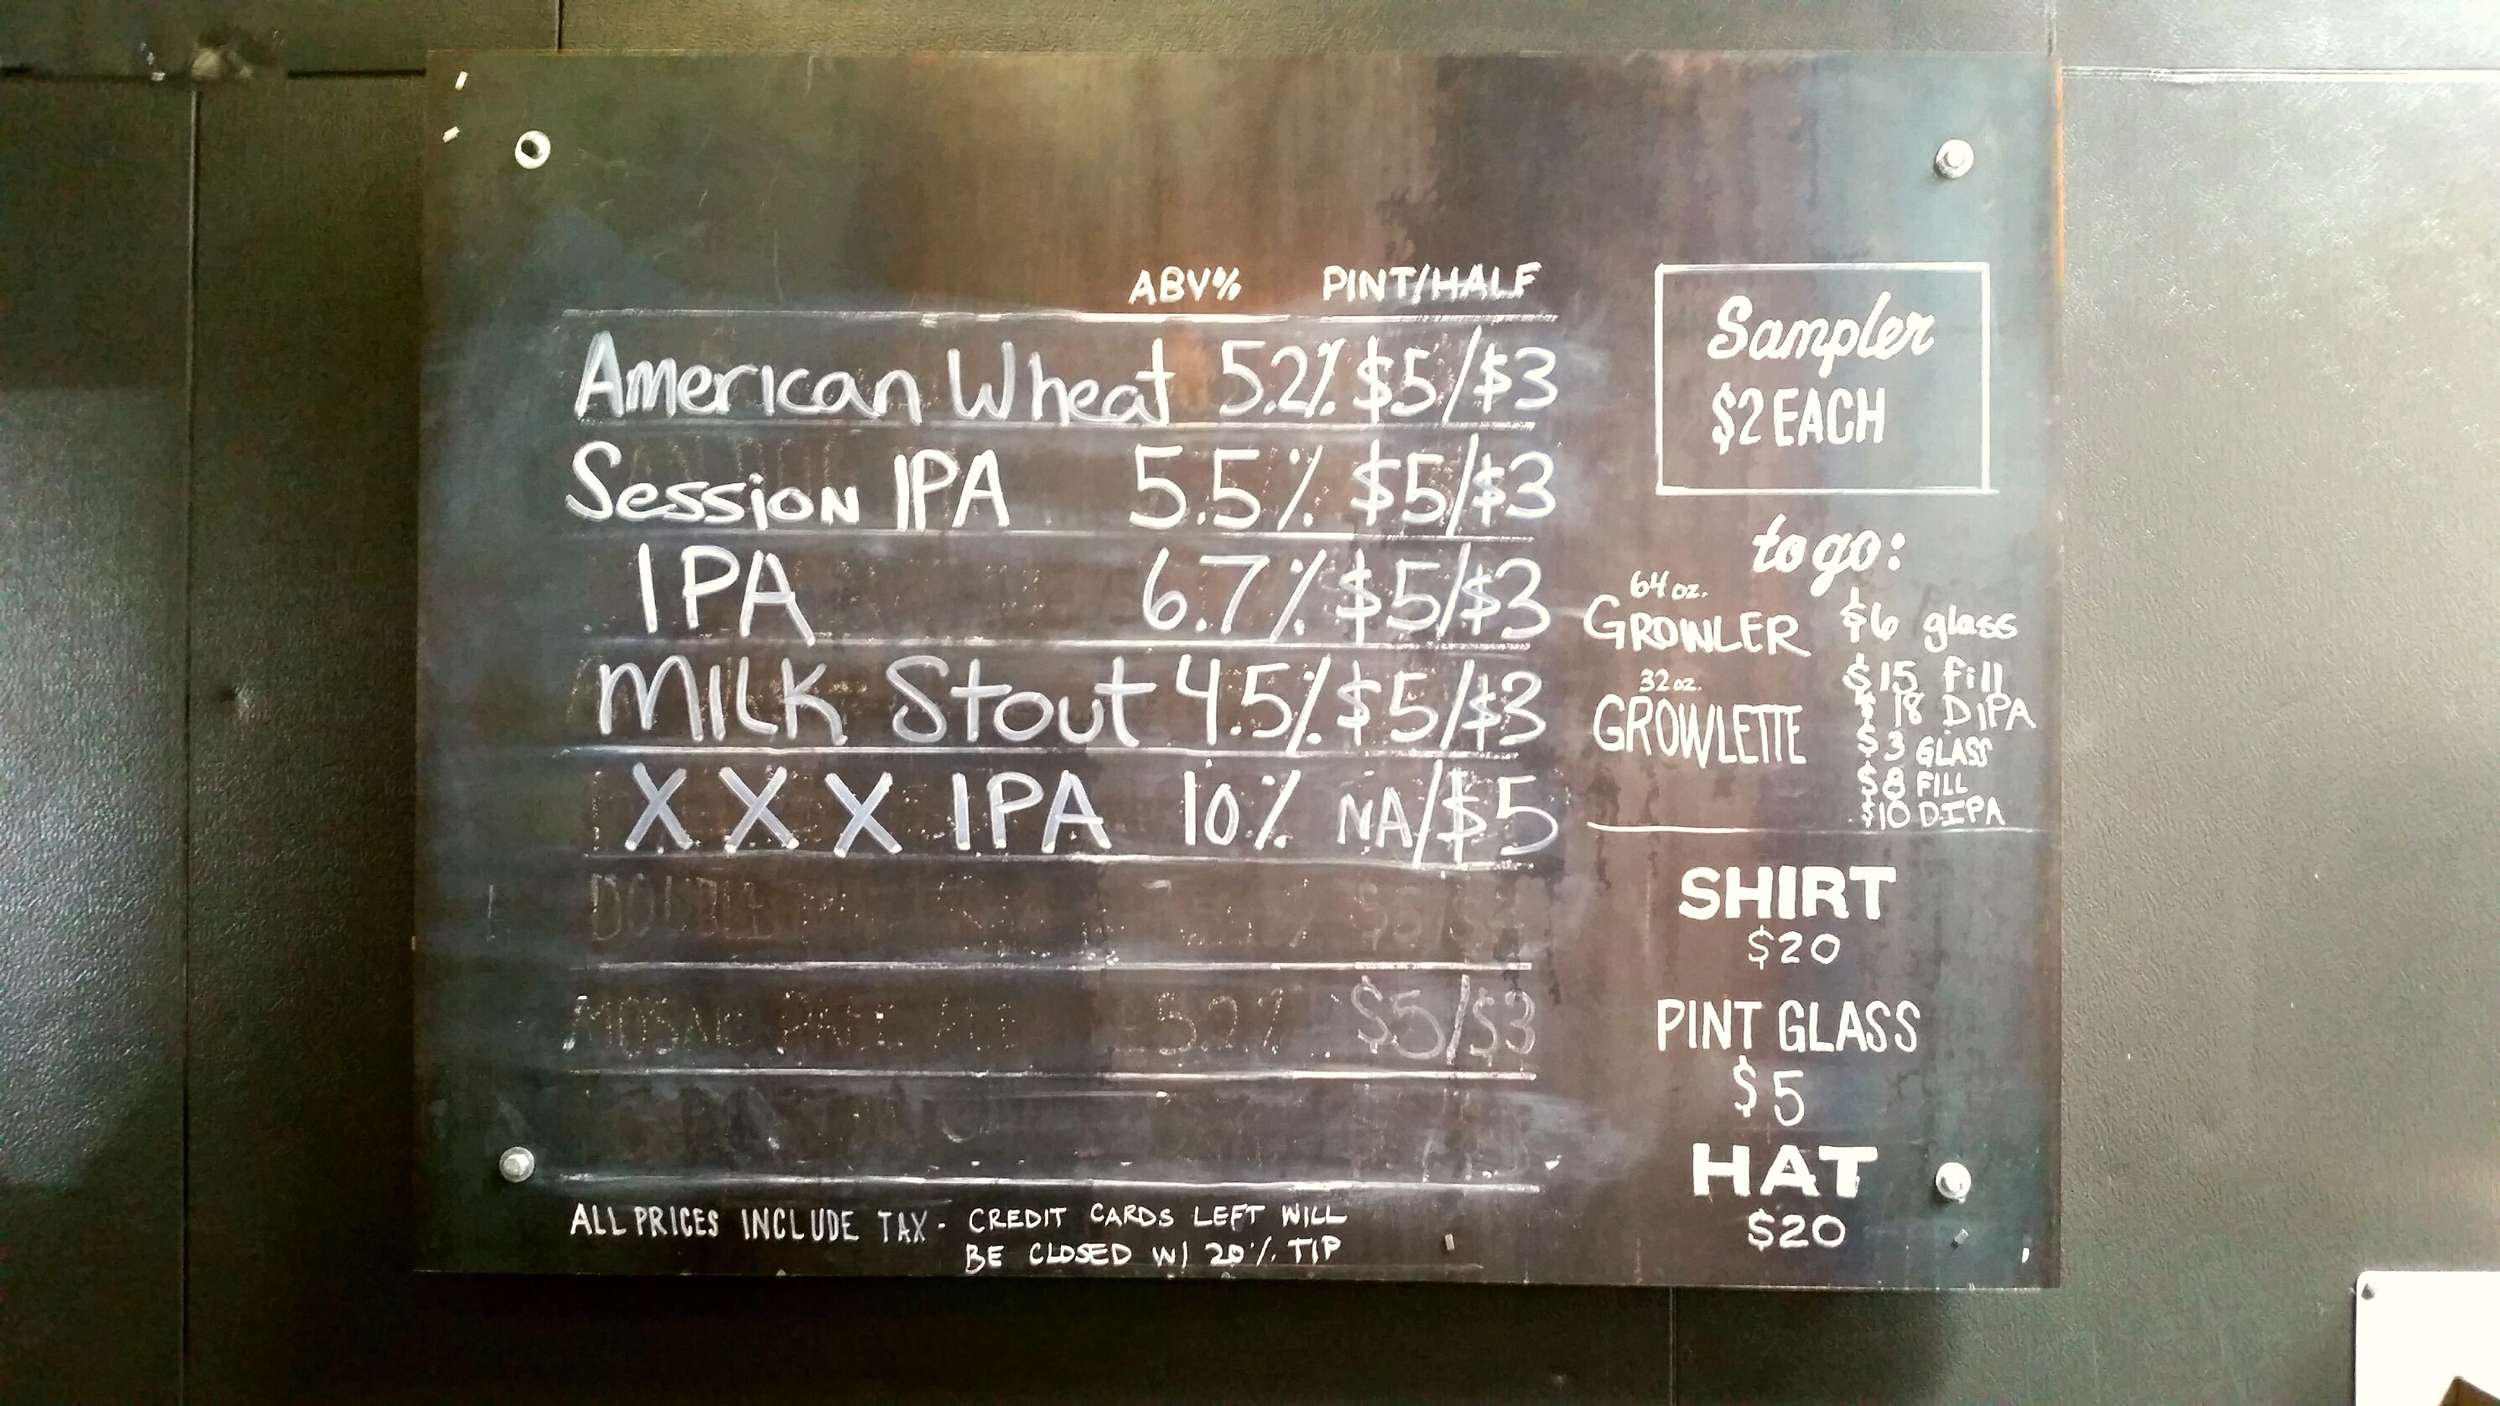 ABV% PINT/HALF
American Wheat 5.2% $5/$3
Session IPA 5.5% $5/$3
IPA 6.7% $5/$3
MILK Stout 4.5% $5/$3
XXX IPA 10% NA/$5
DOUBLE
MOSAIC PALE ALE 5.2% $5/$3
ALL PRICES INCLUDE TAX - CREDIT CARDS LEFT WILL
BE CLOSED W/ 20% TIP
Sampler
$2 EACH
to go:
64 oz.
GROWLER $6 glass
$15 fill
$18 DIPA
32 oz.
GROWLETTE $3 GLASS
$8 FILL
$10 DIPA
SHIRT
$20
PINT GLASS
$5
HAT
$20